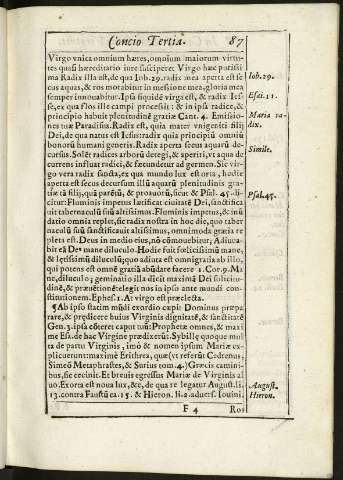 Concio Tertia. 87
Virgo vnica omnium hæres, omnium maiorum virtu-
tes quasi hæreditario iure suscipere. Virgo hæc puriss-
ma Radix illa est, de qua Iob. 29. radix mea aperta est se
cus aquas, & ros morabitur in messione mea, gloria mea
semper innouabitur. Ipsa siquidẽ virga est, & radix Ies-
se, ex qua flos ille campi processit: & in ipsa radice, &
principio habuit plenitudinẽ gratiæ Cant. 4. Emissio-
nes tuæ Paradisus. Radix est, quia mater vnigeniti filij
Dei, de qua natus est Iesus: radix quia principiũ omniũ
bonorũ humani generis. Radix aperta secus aquarũ de-
cursus. Solẽt radices arborũ detegi, & aperiri, vt aqua de
currens influat radici, & fæcundetur ad germen. Sic vir-
go vera radix sancta, ex qua mundo lux est orta, hodie
aperta est secus decursum illũ aquarũ plenitudinis gra-
tiæ
filij, quã parẽti, & Psal. 45. di-
citur: Fluminis impetus lætificat ciuitatẽ Dei, sanctifica
uit tabernaculũ suũ altissimus. Fluminis impetus, & inũ
datio omnia replet, sic radix nostra in hoc die, quo taber
naculũ suũ sanctificauit altissimus, omnimoda gratia re
pleta est. Deus in medio eius, nõ cõmouebitur; Adiuua-
bit eã Deus mane diluculo. Hodie fuit felicissimũ mane,
& lætissimũ diluculũ; quo adiuta est omnigratia ab illo,
qui potens est omnẽ gratiã abũdare facere 1. Cor. 9. Ma-
ne, diluculo; geminatio illa dicit maximã Dei solicitu-
dinẽ, & præuẽtionẽ: elegit nos in ipso ante mundi con-
stitutionem. Ephes. 1. At virgo est præelecta.
¶ Ab ipso statim mũdi exordio capit Dominus præpa
rare, & prædicere huius Virginis dignitatẽ, & sanctitatẽ
Gen. 3. ipsa cõteret caput tuũ: Prophetæ omnes, & maxi
me Esa. de hac Virgine prædixerũt. Sybillę quoque mul
ta de partu Virginis, imò & nomen ipsum Mariæ ex-
plicuerunt: maximè Erithrea, quæ (vt referũt Cedrenus,
Simeõ Metaphrastes, & Surius tom. 4.) Græcis carmini-
bus, sic cecinit. Et breuis egressus Mariæ de Virginis al
uo. Exorta est noua lux, &c, de qua re legatur August. li.
13. contra Faustũ ca. 15. & Hieron. li. 2. aduers. Iouini.
F 4 Ros
Iob. 29.
Esai. 11.
Maria ra-
dix.
Simile.
Psal. 45.
August.
Hieron.